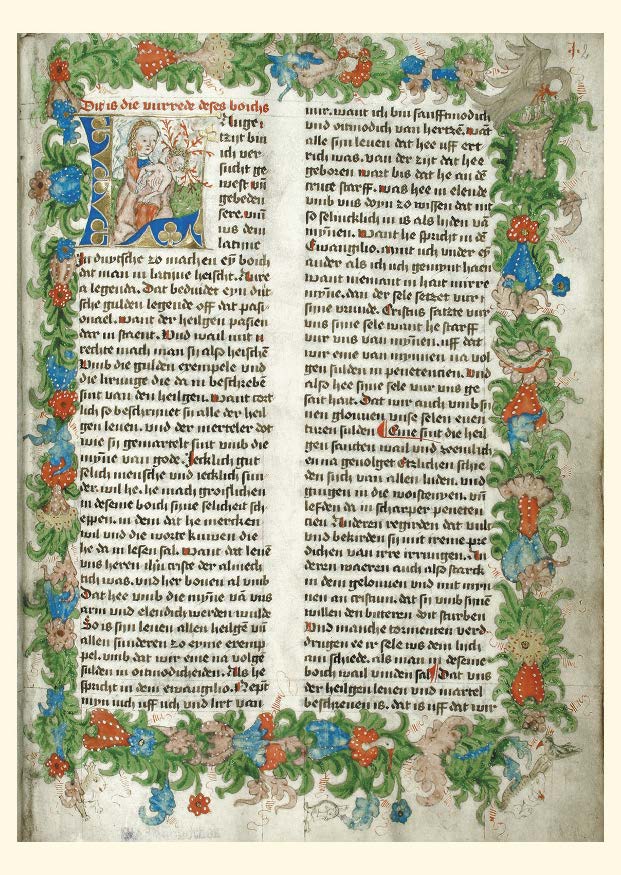 Dit is die vurrede deses boichs
Lange
tzijt bin
ich ver
sucht ge
west vn̄
gebeden
sere. vm̄
vs dem
latine
In duytsche zo machen eyn boich
dat man in latine heischt. Aure
a legenda. Dat beduidet eyn dut
sche gulden legende off dat pasi
onael. want der heilgen pasien
dar in staent. Vnd wail mit u
rechte mach man sy also heischē
Vmb die gulden exempele vnd
die leruuge die da in beschrebē
sint van den heilgen. want cort
lich so beschrinet si alle der heil
gen leuen. vnd der merteler dot
wie sy gemartelt sint vmb die
myn̄e van gode. Jecklich gut
selich mensche vnd iecklich sun
der. wil he. he mach groislichen
in deseme boich sine selicheit sch
eppen. in dem dat he mercken
wil vnd die worte kuwen die
he da in lesen sal. want dat leuē
vns heren ihū criste der almech
tich was. vnd her bouen al vmb
Dat hee vmb die myn̄e vā vns
arm vnd elendich werden wulde
So is sin leuen allen heilgē vn̄
allen sunderen zo eyme exemp
pel. vmb dat wir eme na volge
sulden in oitmodicheiden. Als he
spricht in dem ewangilio. Nempt
myn iuch uff uch vnd lirt van
mir. want ich bin sanffmodich
vnd oitmodich van hertzē. wat
alle sin leuen dat hee uff ert
rich was. van der zijt dat hee
geboren wart bis dat he an dē
cruce starff. was hee in elende
vmb vns dom zo wissen dat nit
so selincklich in is als liden vā
mynen. want he spricht in dē
Ewangilio. mint uch vnder ey
ander als ich uch gemynt haen
want niemant in hait mirre
myn̄e. dan der sele setzet vur s
sine vrunde. Cristus satzte vur
vns sine sele want he starff
vur vns van mynen. uff dat
wir eme van mynnen na vol
gen sulden in penetencien. vnd
also hee sine sele vur vns ge
sait hait. Dat wir auch vmb si
nen glouuen vnse selen euen
turen sulden Eme sint die heil
gen sancten wail vnd zeemlich
en na geuolget Etzlichen schie
den sich van allen luden. vnd
gingen in die woistenyen. vn̄
lefden da in scharper peneten
cien. Anderen regirden dat vulc
vnd bekirden si mit irene pre
dichen van irre irrungen. An
deren waeren auch also starck
in dem gelouuen vnd mit myn
nen an cristum. dat sy vmb sinē
willen den bitteren dot sturben
vnd manche tormenten verd
drugen ee ir sele vs dem lich
am schiede. als man in deseme
boich wail vinden sal. Dat vns
der heilgen leuen vnd martel
beschreuen is. dat is uff dat wir